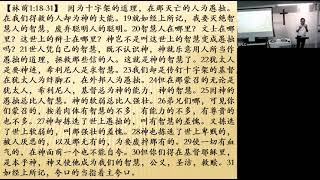 【林前1:18-31】 因为十字架的道理，在那灭亡的人为愚拙。
在我们得救的人却为神的大能。19就如经上所记，我要灭绝智
慧人的智慧，废弃聪明人的聪明。20智慧人在哪里？文士在哪
里？这世上的辩士在哪里？神岂不是叫这世上的智慧变成愚拙
吗？21世人凭自己的智慧，既不认识神，神就乐意用人所当作
愚拙的道理，拯救那些信的人。这就是神的智慧了。22犹太人
是要神迹，希利尼人是求智慧。23我们却是传钉十字架的基督
在犹太人为绊脚石，在外邦人为愚拙。24但在那蒙召的无论是
犹太人，希利尼人，基督总为神的能力，神的智慧。25因神的
愚拙总比人智慧。神的软弱总比人强壮。26弟兄们哪，可见你
们蒙召的，按着肉体有智慧的不多，有能力的不多，有尊贵的
也不多。27神却拣选了世上愚拙的，叫有智慧的羞愧。又拣选
了世上软弱的，叫那强壮的羞愧。28神也拣选了世上卑贱的，
被人厌恶的，以及那无有的，为要废掉那有的。29使一切有血
气的，在神面前一个也不能自夸。30但你们得在基督耶稣里，
是本乎神，神又使他成为我们的智慧，公义，圣洁，救赎。31
如经上所记，夸口的当指着主夸口。